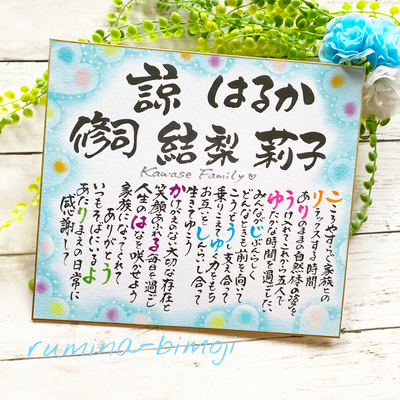 諒 はるか
修司 結梨 莉子
Kawase Family♡
こころやすらぐ家族との
リラックスする時間
ありのままの自然体の姿を
うけ入れてこれから五人で
ゆたかな時間を過ごしたい
みんながじぶんらしく
どんなときも前を向いて
こうどうし支え合って
乗りこえてゆく力をもち
お互いをしんらいし合って
生きてゆこう
かけがえのない大切な存在と
笑顔あふれる毎日を過ごし
人生のはなを咲かせよう
家族になってくれて
ありがとう
いつもそばにいるよ
あたりまえの日常に
感謝して
rumina-bimoji